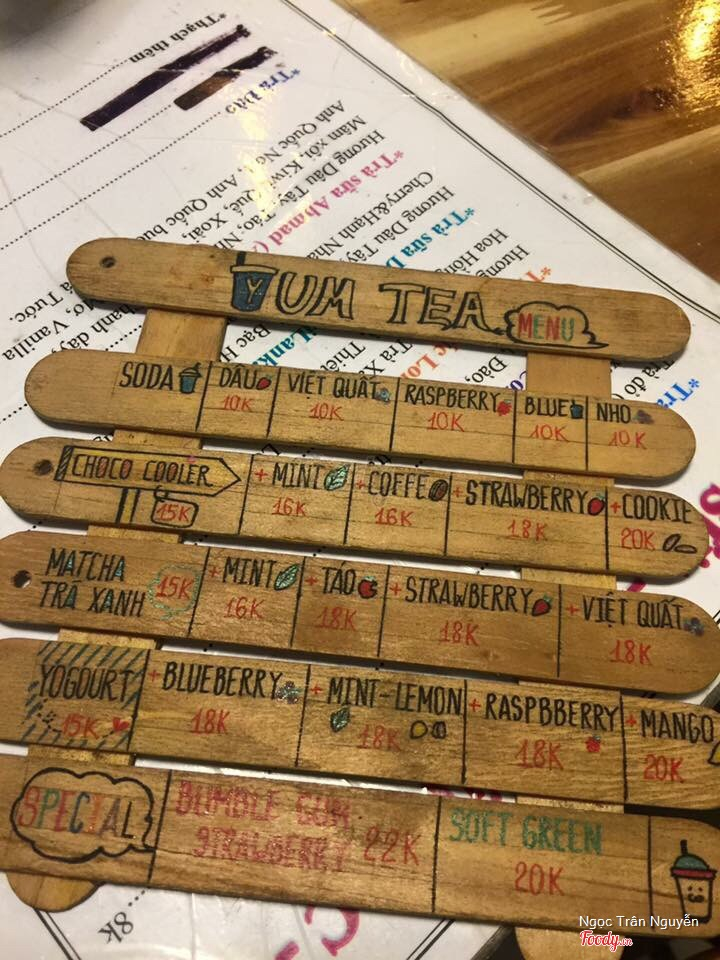 YUM TEA MENU
SODA DÂU 10K VIỆT QUẤT 10K RASPBERRY 10K BLUE 10K NHO 10K
CHOCO COOLER 15K + MINT 16K + COFFE 16K + STRAWBERRY 18K + COOKIE 20K
MATCHA TRÀ XANH 15K + MINT 16K + TÁO 18K + STRAWBERRY 18K + VIỆT QUẤT 18K
YOGOURT 15K + BLUEBERRY 18K + MINT-LEMON 18K + RASPBBERRY 18K + MANGO 20K
SPECIAL BUMBLE GUM STRAWBERRY 22K SOFT GREEN 20K
*Thạch thêm
*Trà Đào
Hương Dâu Tây, Táo,
Mâm xôi, Kiwi,
Anh Quốc
*Trà sữa Ahmad
Hương Dâu Tây
Cherry&Hạnh Nhân
*Trà sữa
Hương
Hoa Hồng
Vanilla
8k
Ngọc Trân Nguyễn
Foody.vn